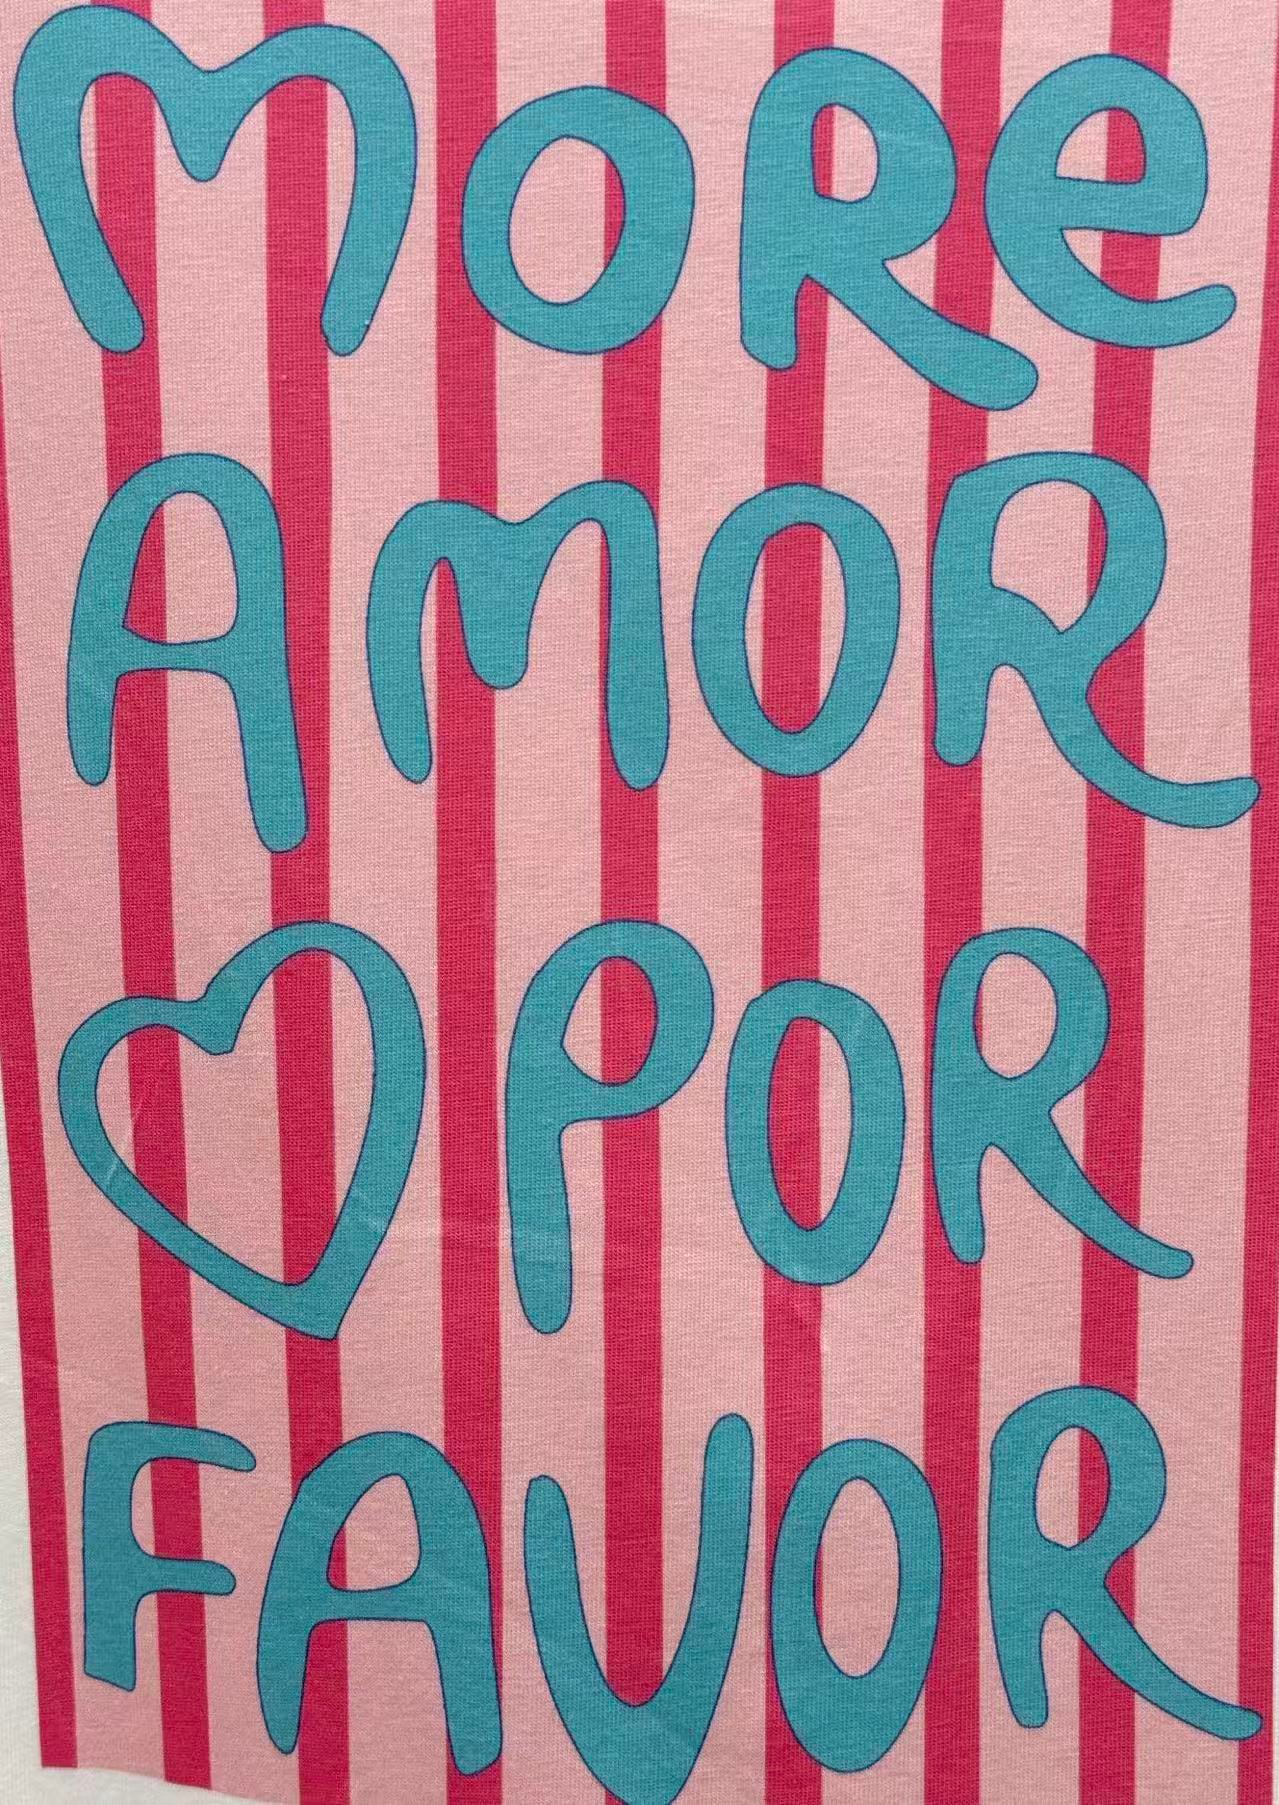 MORe
AMOR
♡ POR
FAVOR